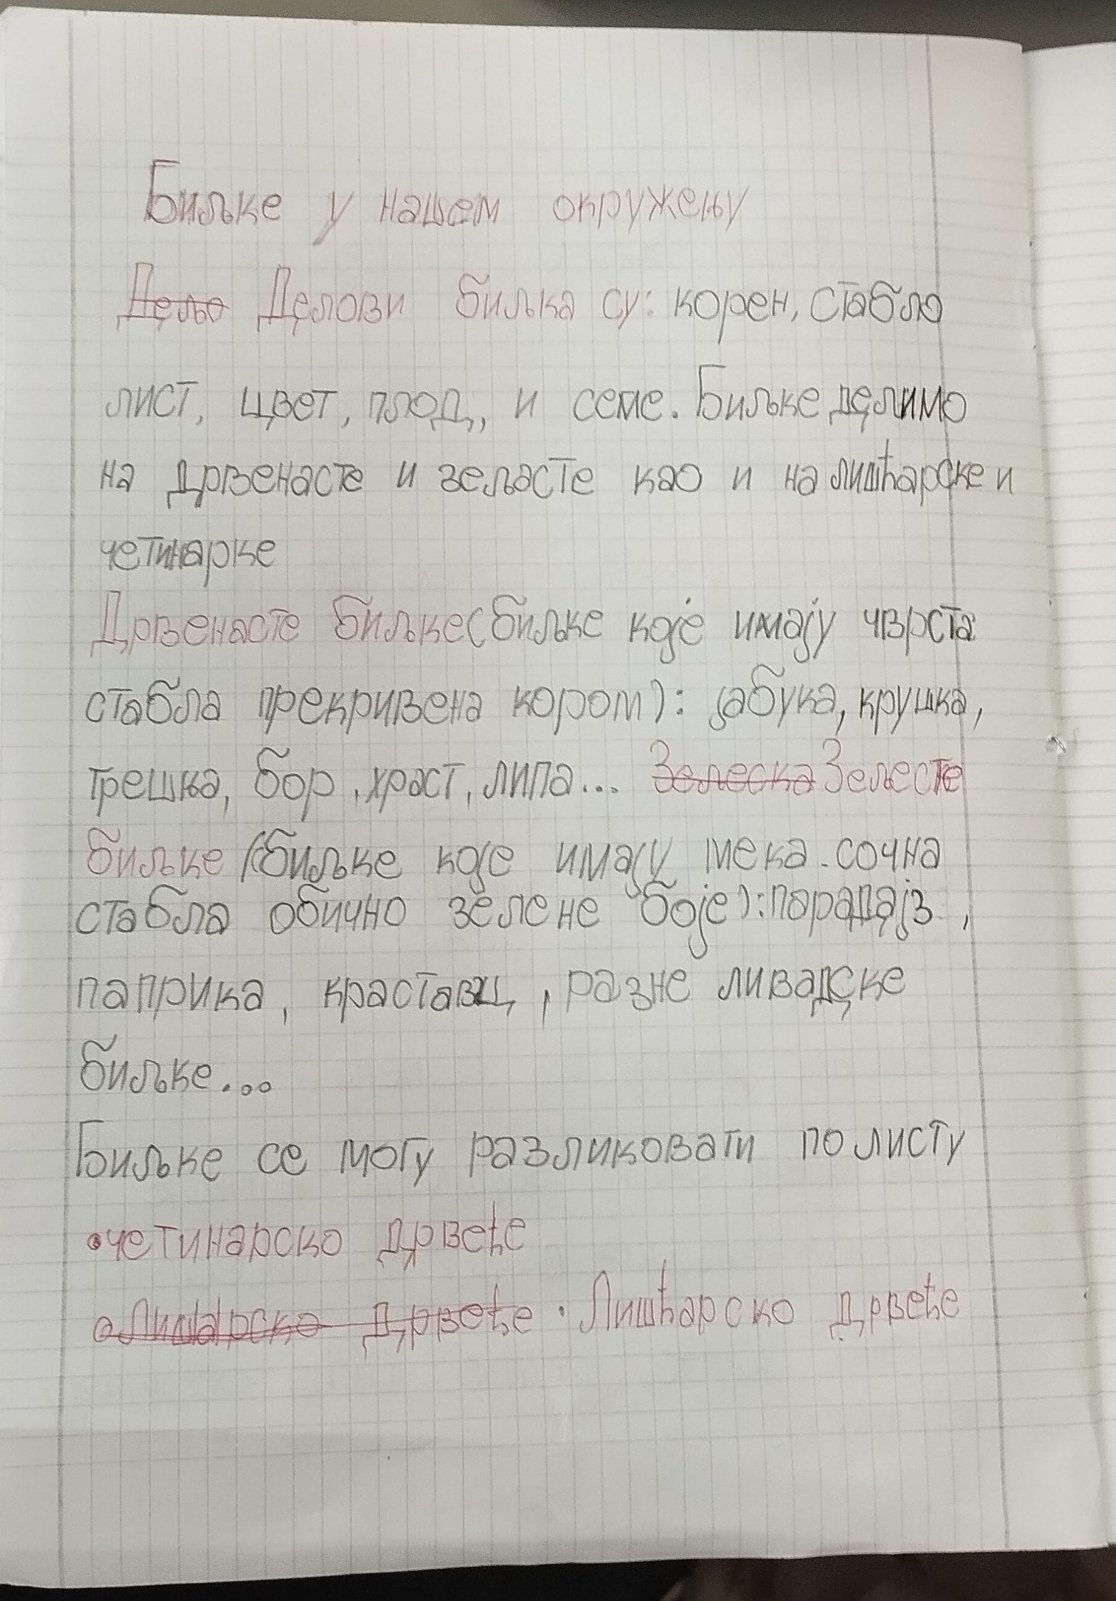 Биљке у нашем окружењу
Дељо Делови биљка су: корен, стабло
лист, цвет, плод, и семе. Биљке делимо
на дрвенасте и зељасте као и на лишћарске и
четинарке
Дрвенасте биљке (биљке које имају чврста
стабла прекривена кором): јабука, крушка,
трешња, бор, храст, липа... Зелеска Зелесте
биљке (биљке које имају мека сочна
стабла обично зелене боје): парадајз,
паприка, краставц, разне ливадске
биљке...
Биљке се могу разликовати по листу
•четинарско дрвеће
•Лишарско дрвеће •Лишћарско дрвеће